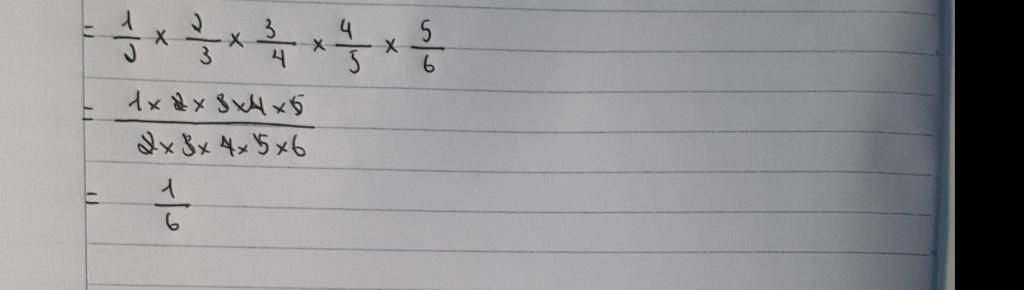 = 1/2 × 2/3 × 3/4 × 4/5 × 5/6
= 1×2×3×4×5 / 2×3×4×5×6
= 1/6